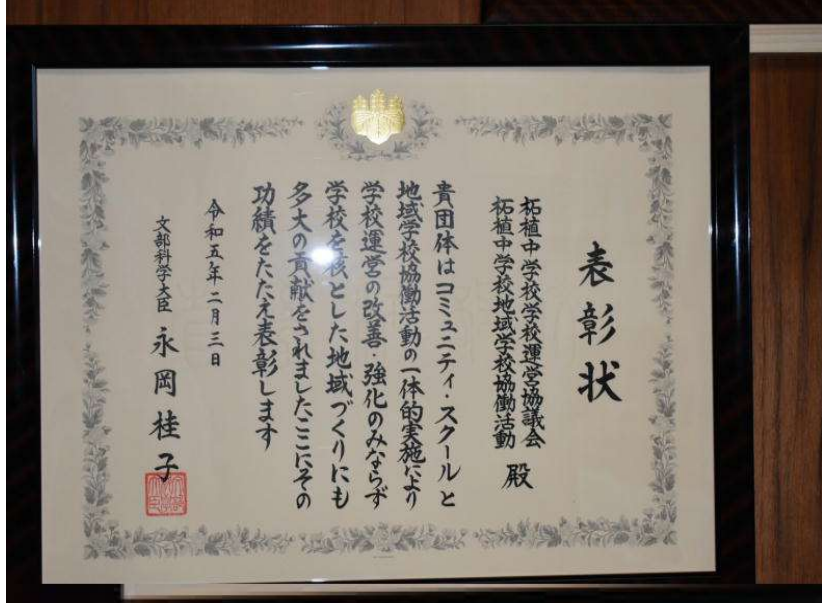 表彰状
柘植中学校学校運営協議会
柘植中学校地域学校協働活動
殿
貴団体はコミュニティ・スクールと
地域学校協働活動の一体的実施により
学校運営の改善・強化のみならず
学校を核とした地域づくりにも
多大の貢献をされましたここにその
功績をたたえ表彰します
令和五年二月三日
文部科学大臣 永岡桂子